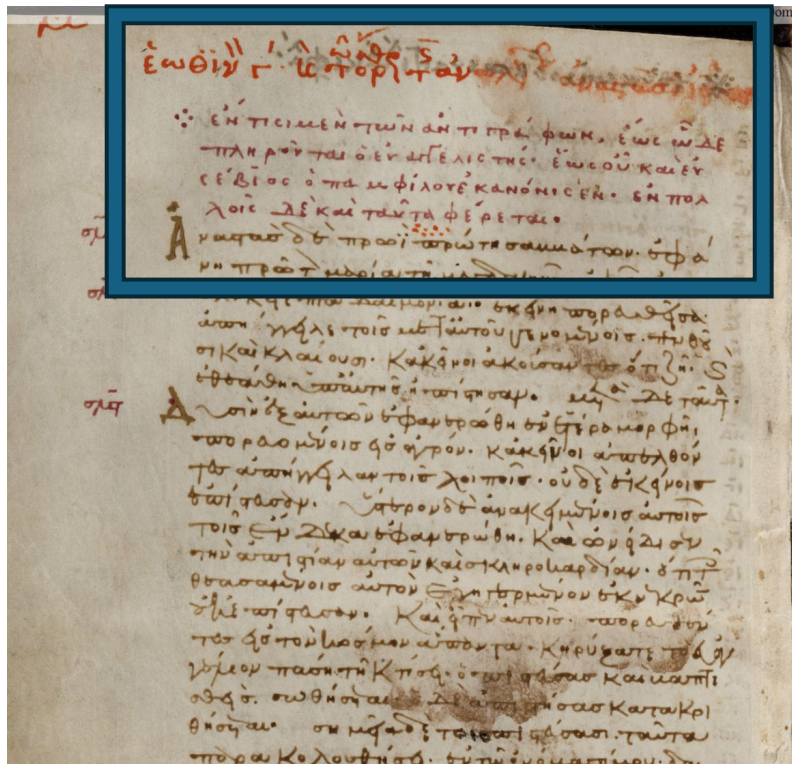 ἑωθιν γ
ἔν τισι μὲν τῶν ἀντιγράφων, ἕως ὧδε
πληροῦται ὁ εὐαγγελιστής· ἕως οὗ καὶ εὐ
σέβιος ὁ παμφίλου ἐκανόνισεν· ἐν πολ
λοῖς δὲ καὶ ταῦτα φέρεται·
Ἀναστὰς δὲ πρωῒ πρώτη σαββάτων· ἐφά
νη πρῶτ μαρία τῆ
ἑπτὰ δαιμόνια· ἐκείνη πορευθεῖσα
ἀπήγγειλε τοῖς μετ' αὐτοῦ γενομένοις· πενθοῦ
σι καὶ κλαίουσι· κἀκεῖνοι ἀκούσαντες ὅτι ζῆ· καὶ
ἐθεάθη ὑπ' αὐτῆς ἠπίστησαν. μετὰ δὲ ταῦτ·
Δυσὶν ἐξ αὐτῶν ἐφανερώθη ἐν ἑτέρα μορφῆ,
πορευομένοις εἰς ἀγρόν. κἀκεῖνοι ἀπελθόν
τες ἀπήγγειλαν τοῖς λοιποῖς· οὐδὲ ἐκείνοις
ἐπίστευσαν. ὕστερον δὲ ἀνακειμένοις αὐτοῖς
τοῖς ἕνδεκα ἐφανερώθη. καὶ ὠνείδισεν
τὴν ἀπιστίαν αὐτῶν καὶ σκληροκαρδίαν· ὅτι τ
θεασαμένοις αὐτὸν ἐγηγερμένον ἐκ νεκρῶ
ἐπίστευσαν. Καὶ εἶπεν αὐτοῖς· πορευθέν
τες εἰς τὸν κόσμον ἅπαντα. κηρύξατε τὸ εὐαγ
γέλιον πάση τῆ κτίσει· ὁ πιστεύσας καὶ βαπτι
σθεὶς. σωθήσεται· δὲ ἀπιστήσας κατακρι
θήσεται· σημεῖα δὲ τοῖς πιστεύσασι ταῦτα
παρακολουθήσει· ἐν τῶ ὀνόματί μου. δα